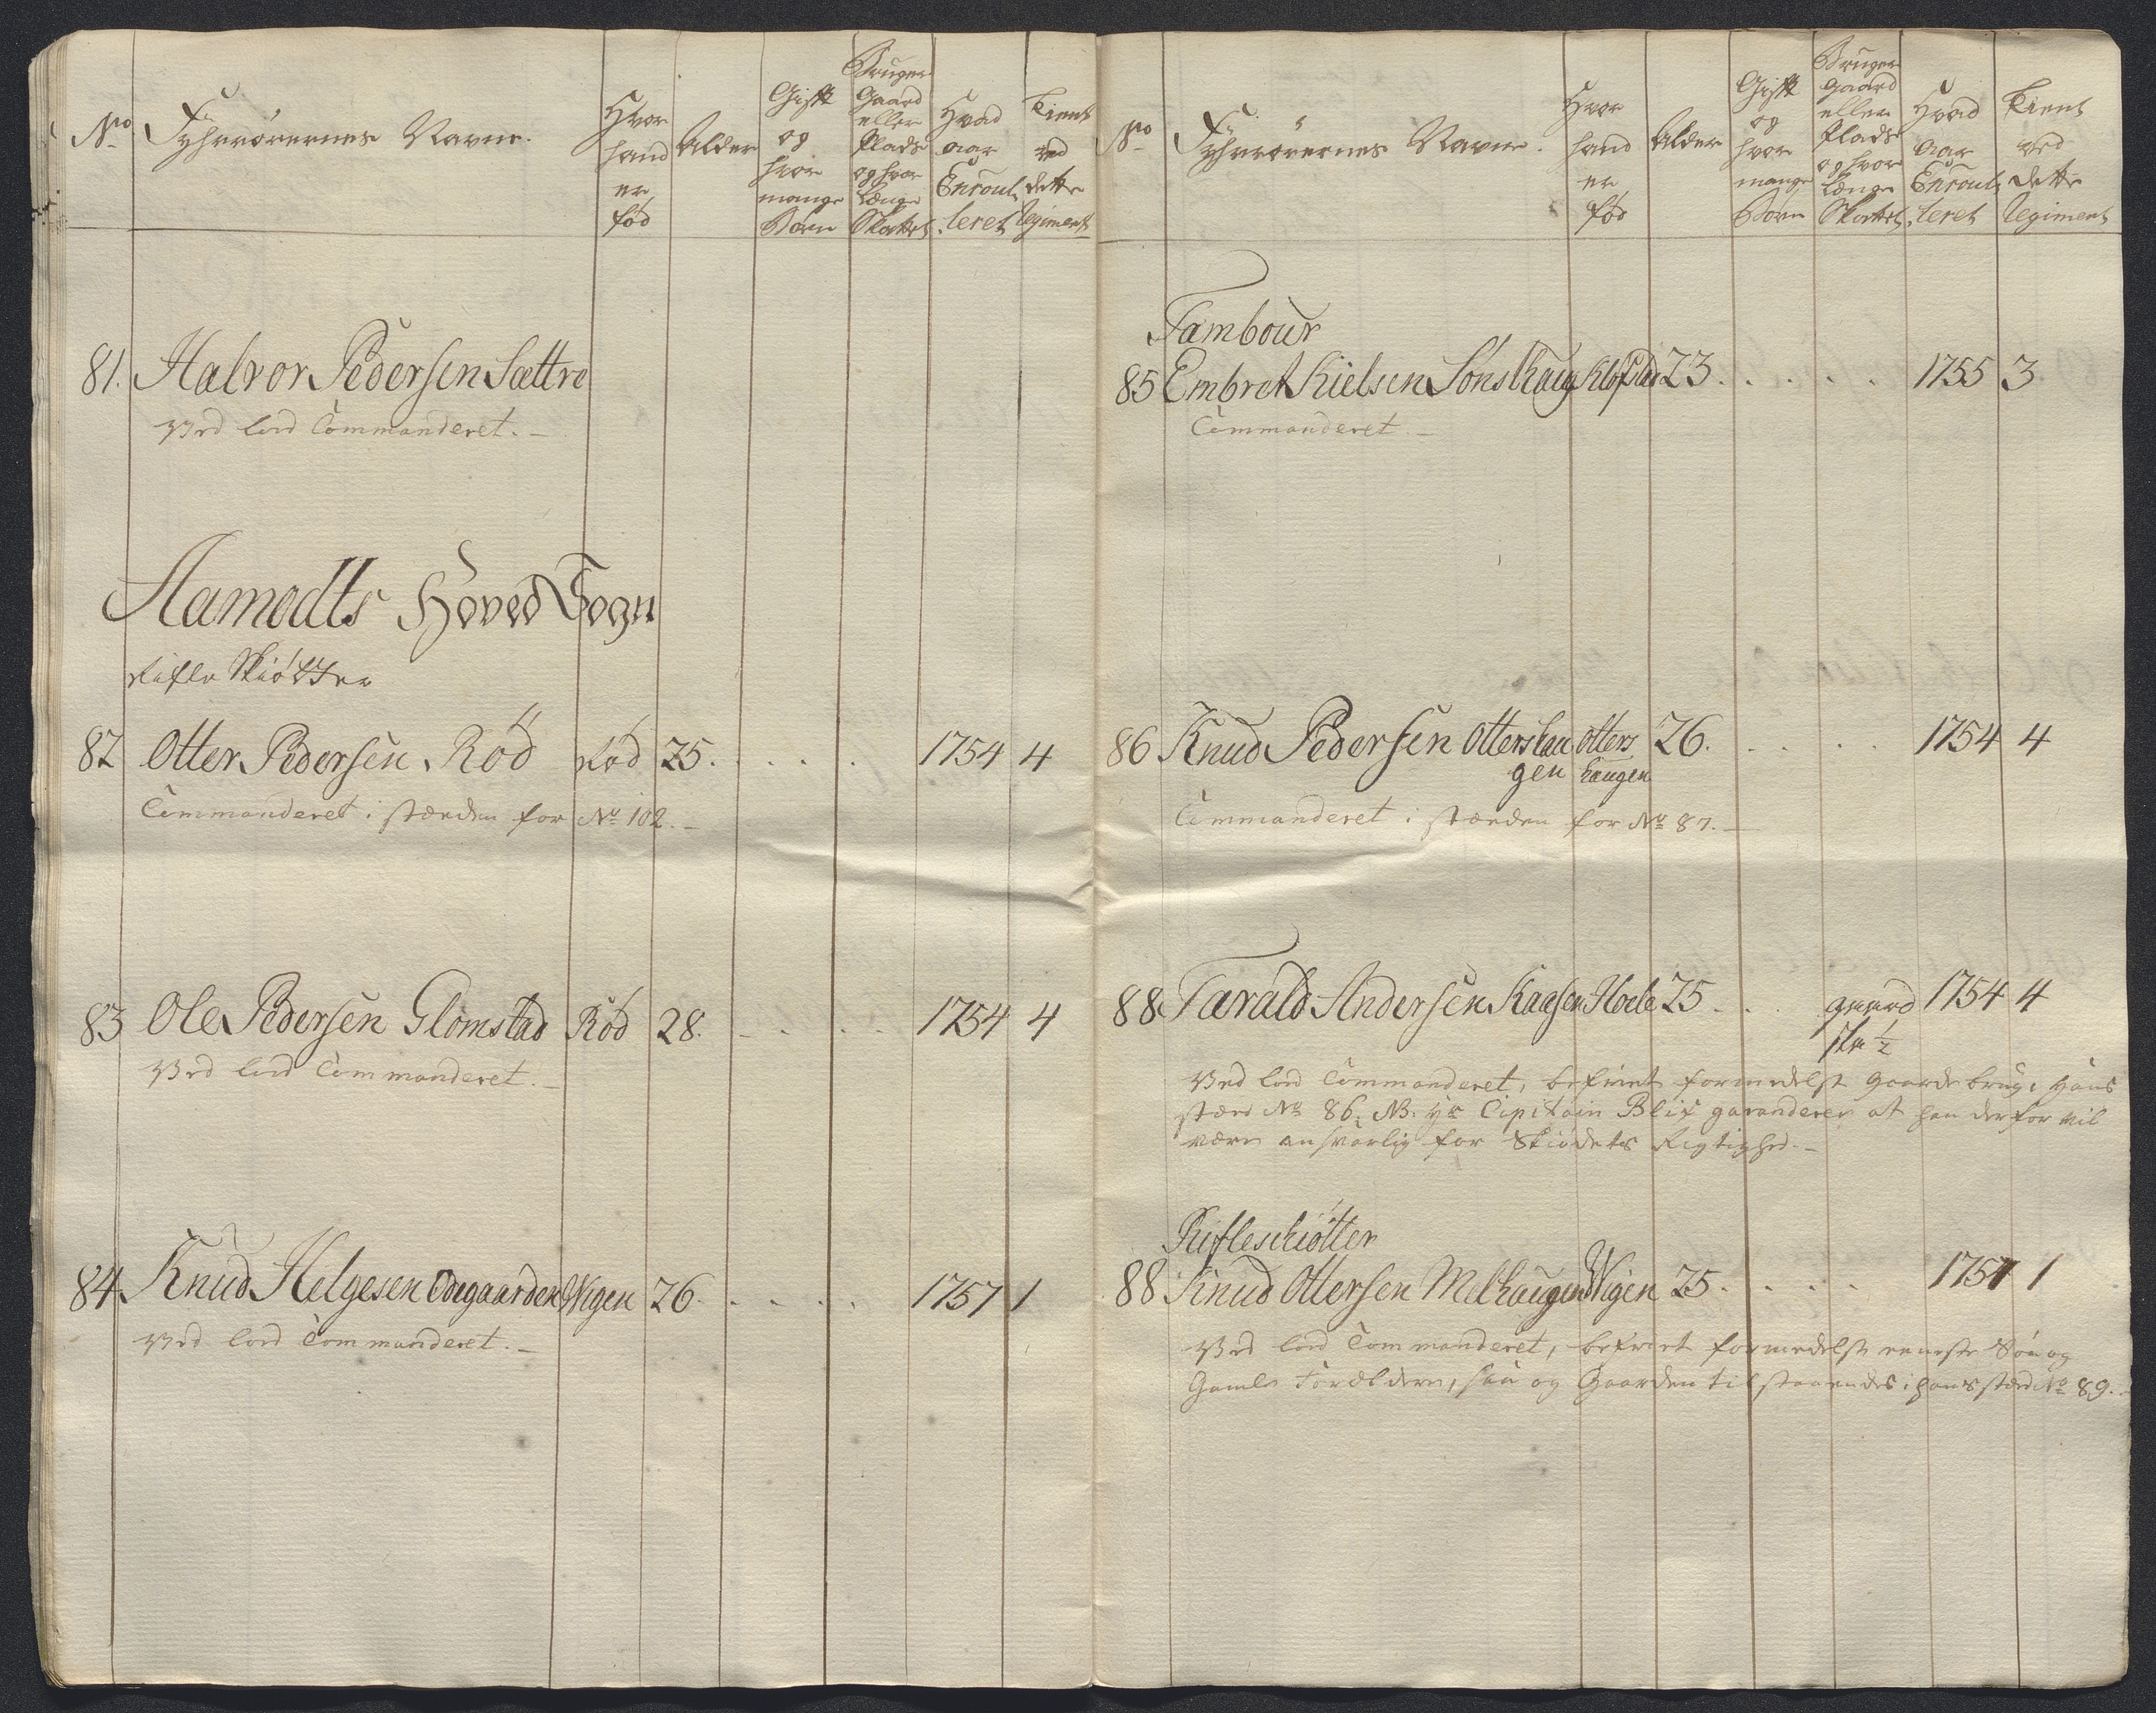 No
Fyhrrörernes Navne.
Hvor
hand
er
fód
Alder
Gift
og
hvor
mange
Börn
Bruger
Gaard
eller
Plads
og hvor
Længe
Skattet
Hvad
aar
Enroul,
leret
Tient
ved
dette
Regiment
81. Halvor Pedersen Sættre
Ved lod Commanderet.
Aamodts Hoved Sogn
Rifle Skiötter
82 Otter Pedersen Röd Röd 25. . . . . 1754 4
Commanderet i stæden for No 102.
83 Ole Pedersen Glomstad Röd 28. . . . . 1754 4
Ved lod Commanderet.
84. Knud Helgesen Ödegaarden Wigen 26. . . . . 1757 1
Ved lod Commanderet.
No
Fyhrrörernes Navne.
Hvor
hand
er
fód
Alder
Gift
og
hvor
mange
Börn
Bruger
gaard
eller
Plads
og hvor
Længe
Skattet
Hvad
aar
Enroul,
leret
Tient
ved
dette
Regiment
Tambour
85 Embret Kielsen Lönshaug Klöfstad 23. . . . . 1755 3
Commanderet.
86 Knud Pedersen Ottershau Otters 26. . . . . 1754 4
gen haugen
Commanderet i stæden for No 87.
88 Tarald Andersen Kaasen Hoele 25 . . . 1754 4
1/2
Ved lod Commanderet, befriet formedelst Gaarde brug, Hans
stæd No 86. NB. Hr Capitain Blix garanderer at han derfor vil
være ansvarlig for Skiödets Rigtighed.
Rifleschiötter
88 Knud Ottersen Melhaugen Wigen 25. . . . . 1757 1
Ved lod Commanderet, befriet formedelst eneste Sön og
Gamle Forældere, saa og Gaarden tilstaaendes i hans stæd No 89.